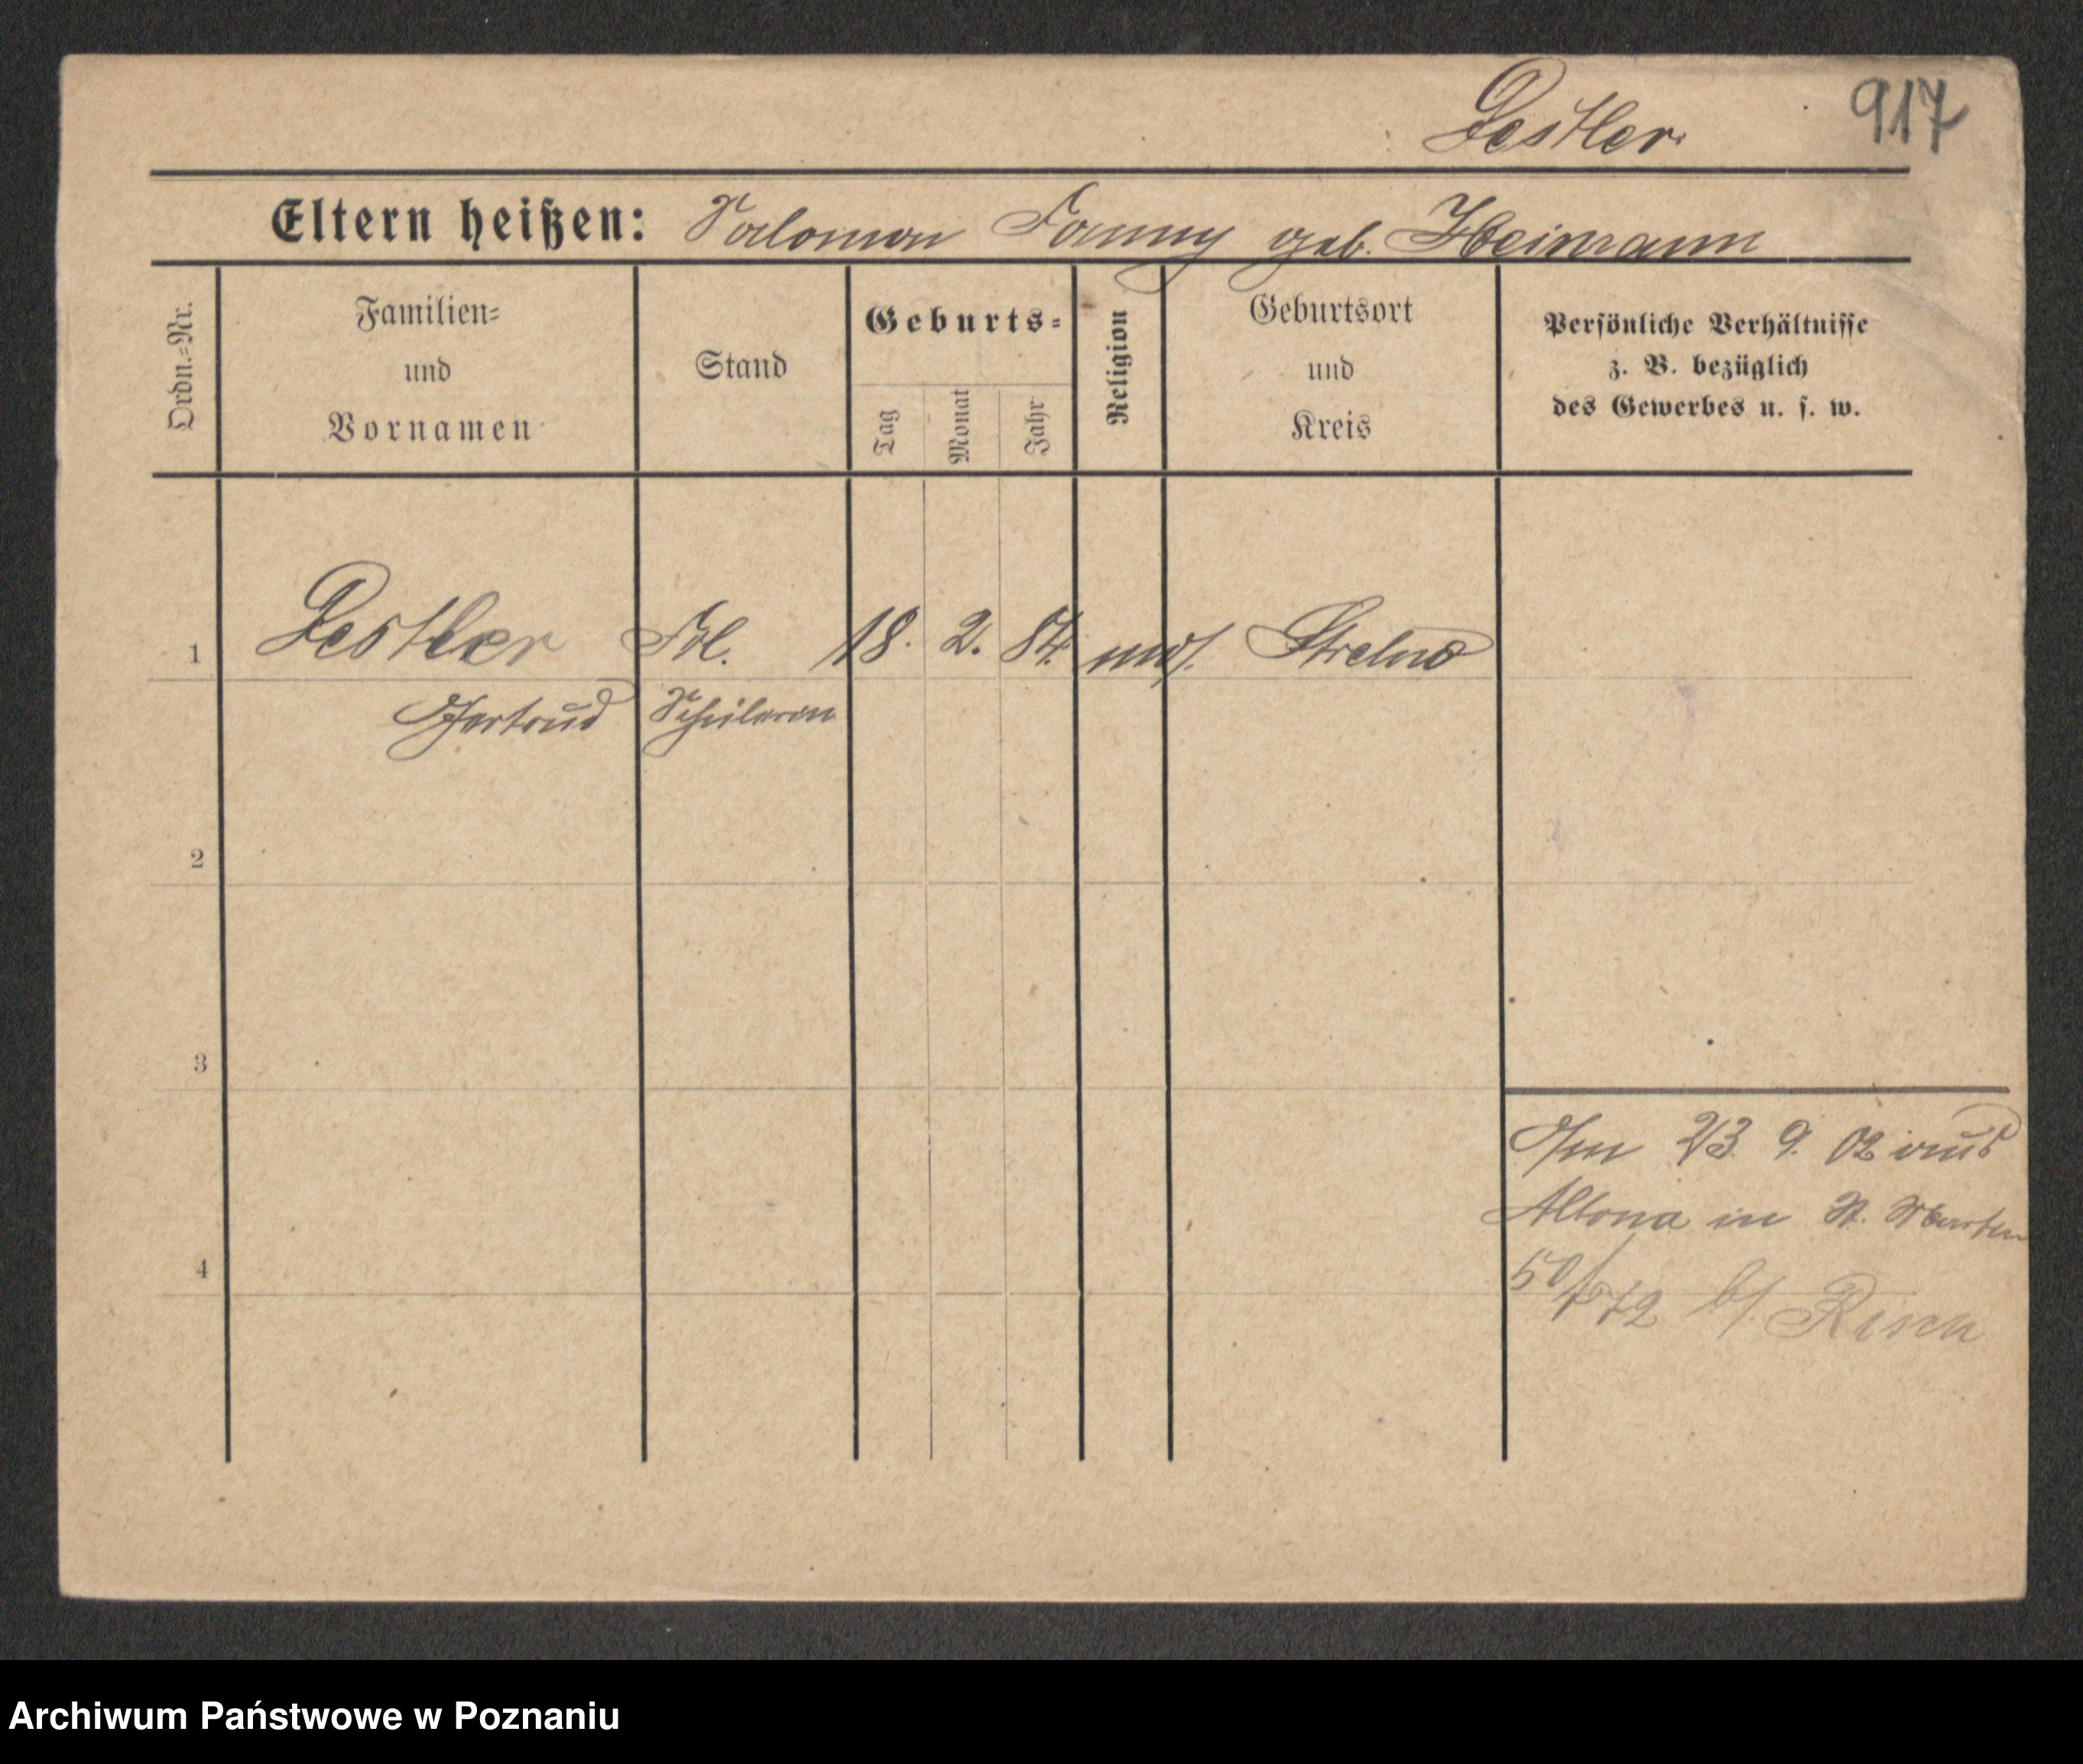 Pestler 917
Eltern heißen: Salomon Fanny geb. Heimann
Ordn.=Nr.
Familien=
und
Vornamen
Stand
Geburts=
Tag
Monat
Jahr
Religion
Geburtsort
und
Kreis
Persönliche Verhältnisse
z. B. bezüglich
des Gewerbes u. s. w.
1 Pestler Frl. 18. 2. 84. mos. Strelno
Gertrud Schülerin
2
3
Am 23. 9. 02 aus
Altona in St. Martin
4
50/ 72 b/.
Archiwum Państwowe w Poznaniu